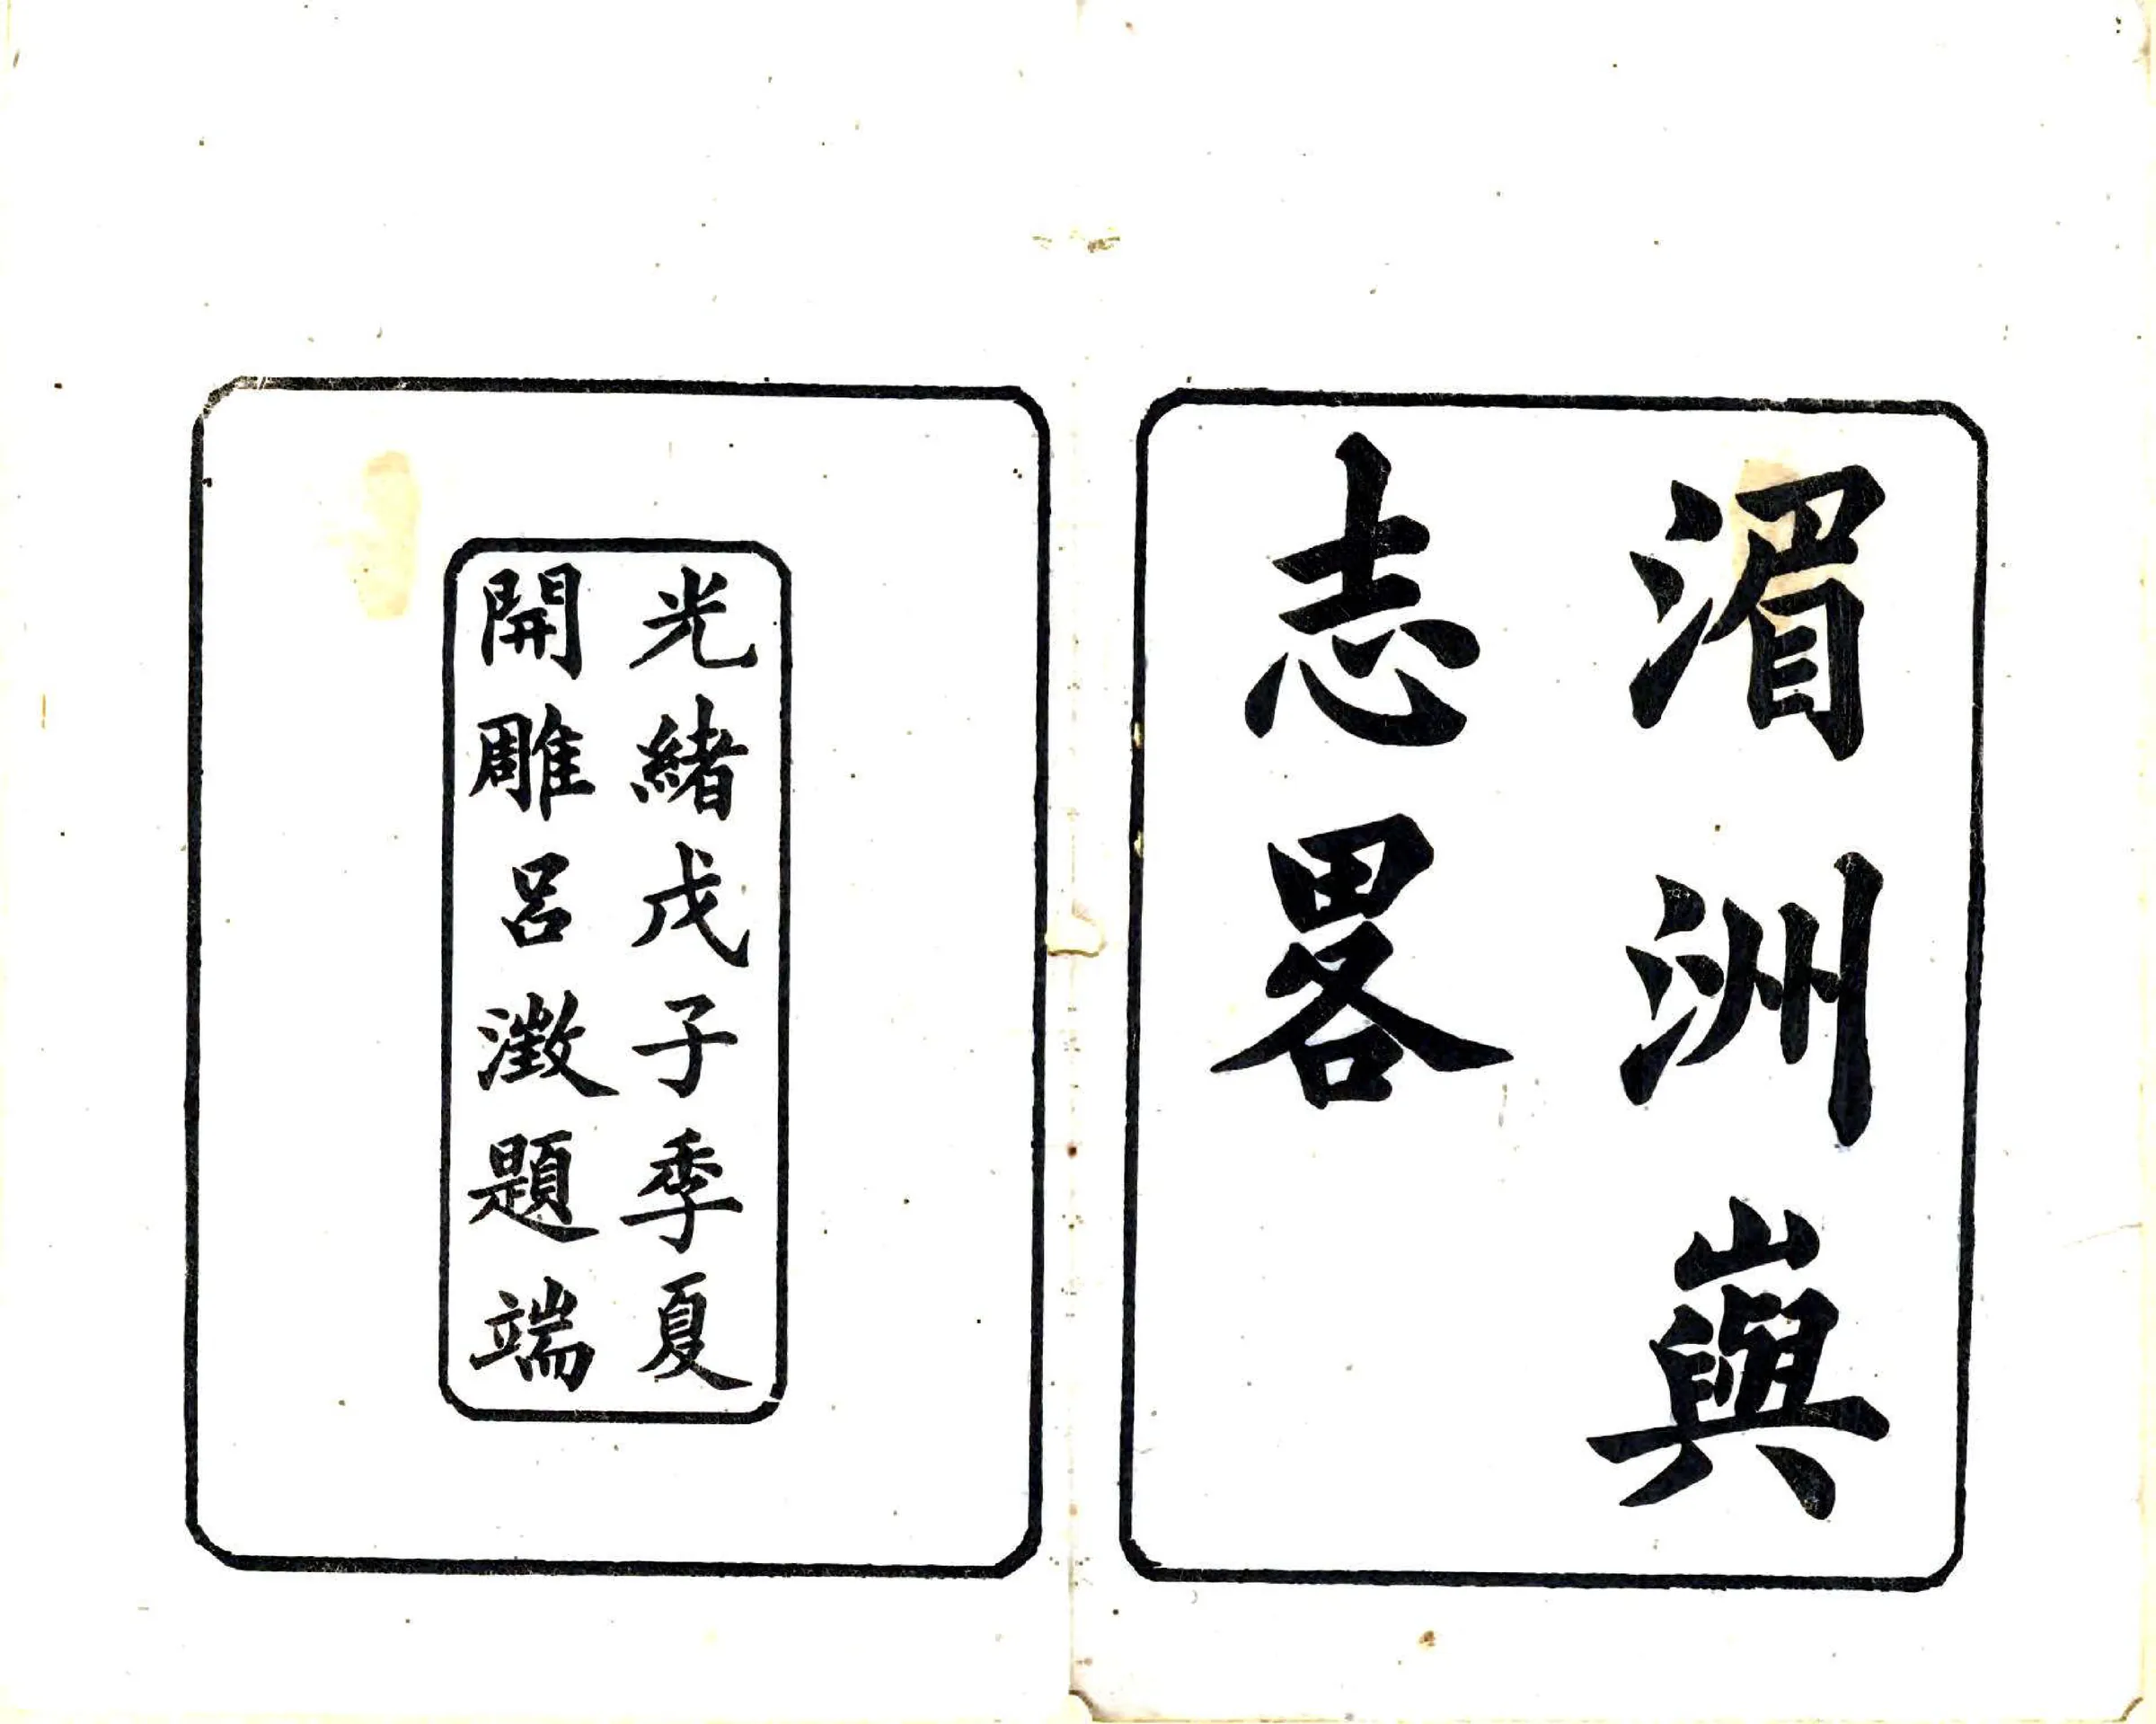 湄洲嶼
志畧
光緒戊子季夏
開雕呂澂題端